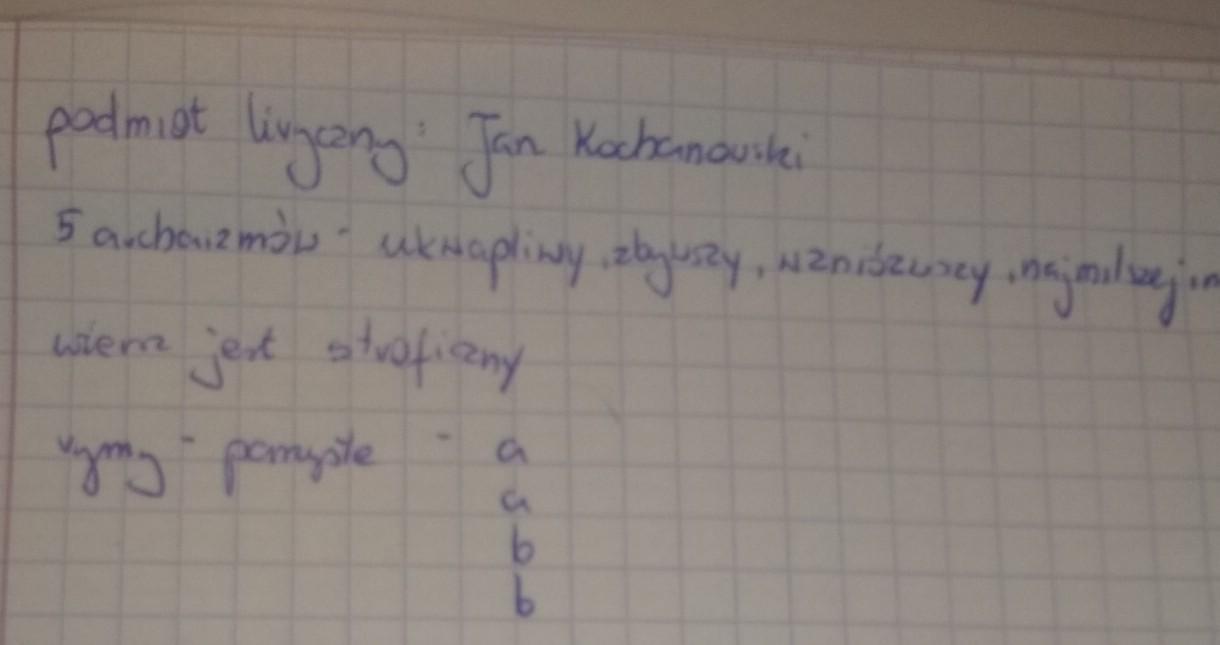 podmiot liryczny: Jan Kochanowski
5 archaizmów - ukwapliwy, zbywszy, wzniózwszy, najmilszej,
wiersz jest stroficzny
rymy - parzyste - a
a
b
b